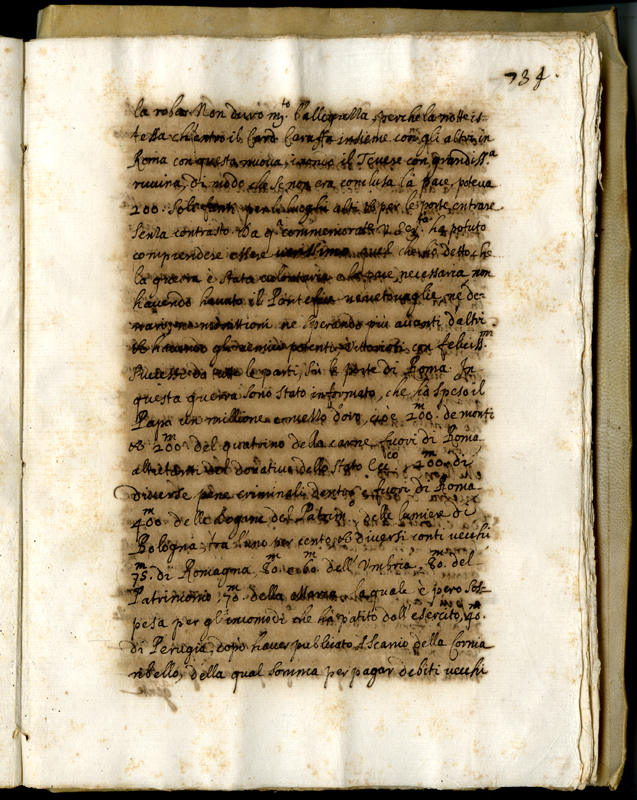 734.
la robba. Non durò m.to l'allegrezza, perche la notte is-
tessa ch'entrò il Card. Caraffa insieme con gli altri in
Roma con questa nuova, venne il Tevere con grandiss.a
ruuina, di modo che se non era conclusa la pace, poteua
200. soli fanti per li luoghi alti et per le porte entrare
senza contrasto. Da q.
comprendere essere uerissimo quel che hò detto, che
la guerra è stata uolontaria e la pace necessaria non
hauendo hauuto il Pontefice ne uettouaglie, ne de-
naro, ne monitioni ne sperando più auanti d'altri
et hauendo gl'inemici potenti, Vittoriosi, con feliciss.m
successi da tutte le parti, sin le porte di Roma. In
questa guerra sono stato informato, che hà speso il
Papa un millione e mezzo d'oro, cioè 200.m de monti
et 200.m del quatrino della carne, fuori di Roma
altretanti del donatiuo dello Stato Ecc.co, 400.m di
diuerse pene criminali dentro, e fuori di Roma
400.m delle Dogane del Patrim.o, delle lumiere di
Bologna, tra l'uno per cento, et diuersi conti uecchi
75.m di Romagna, 80.m e 60.m dell'Vmbria, 80.m del
Patrimonio, 70.m della Marca, la quale è però sos-
pesa per gl'incomodi che hà patito dall'esercito, 40.m
di Perugia, dopo hauer publicato Ascanio della Cornia
ribello, della qual somma per pagar debiti uecchi